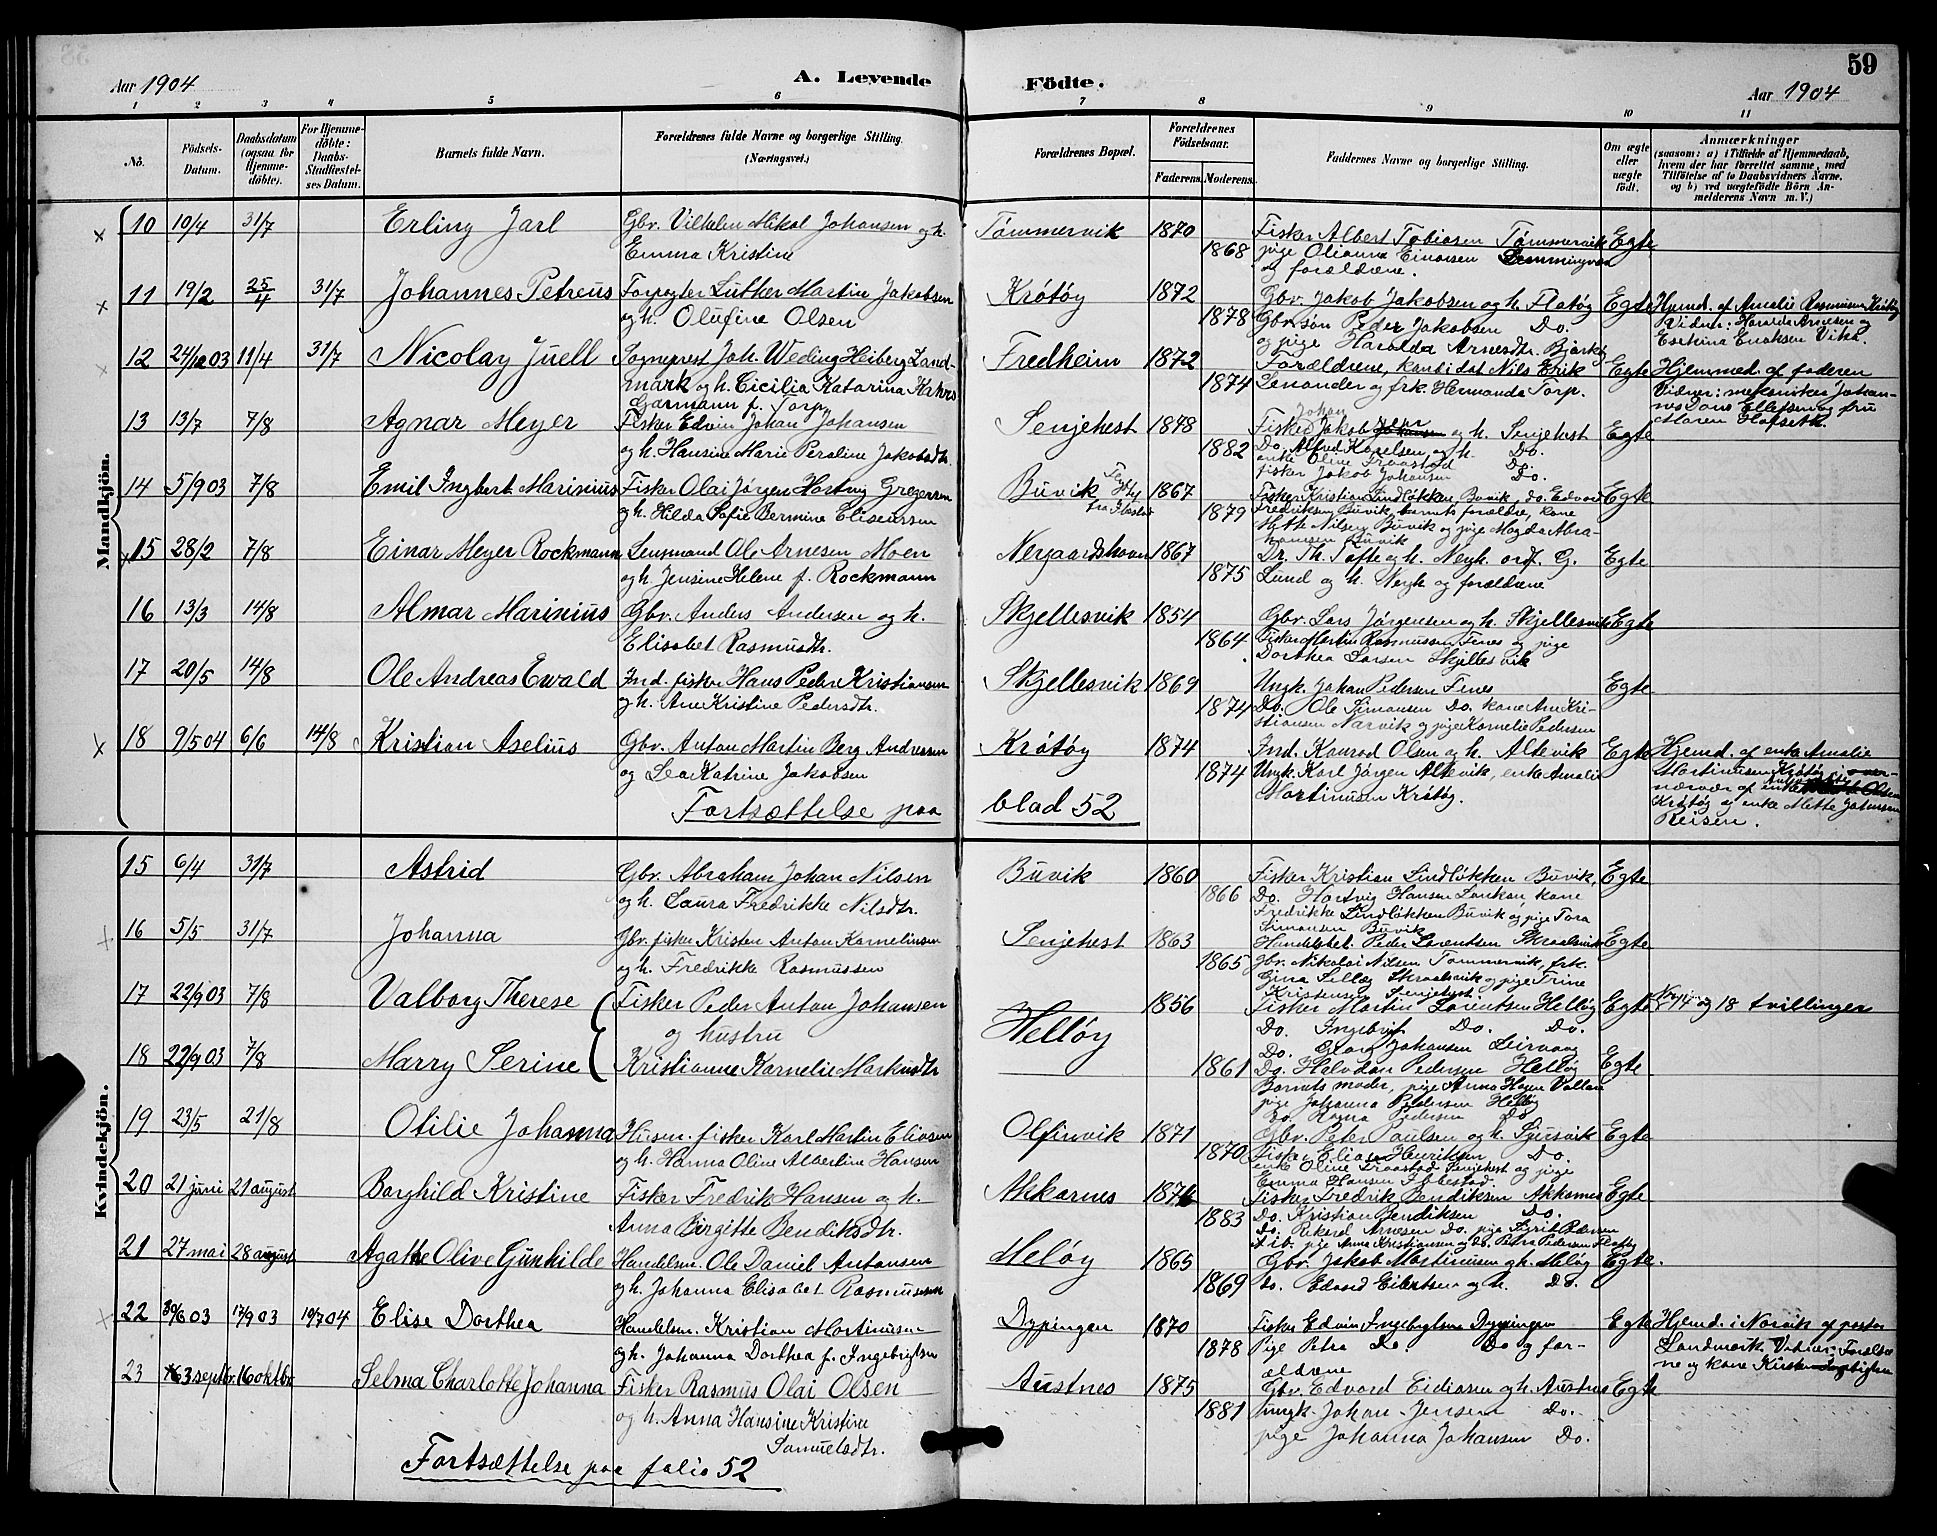 59
Aar 1904
A. Levende Födte.
Aar 1904
1 2 3 4 5 6 7 8 9 10 11
No.
Födsels-Datum.
Daabsdatum (ogsaa for Hjemmedöbte).
For Hjemmedöbte: Daabs-Stadfæstelses Datum.
Barnets fulde Navn.
Forældrenes fulde Navne og borgerlige Stilling. (Næringsvei.)
Forældrenes Bopæl.
Forældrenes Födselsaar.
Faderens. Moderens.
Faddernes Navne og borgerlige Stilling.
Om ægte eller uægte födt.
Anmærkninger
(saasom: a) i Tilfælde af Hjemmedaab, hvem der har forrettet samme, med Tilföielse af to Daabsvidners Navne, og b) ved uægtefödte Börn Anmelderens Navn m. V.)
Mandkjön.
10 10/4 31/7 Erling Jarl Gbr. Vilhelm Mikal Johansen og h. Tømmervik 1870 Fisker Albert Tobiasen Tømmervik Egte
Emma Kristine 1868 pige Olianna Einarsen
og forældrene.
11 19/2 25/4 31/7 Johannes Petreus Forpagter Luther Martin Jakobsen Krøtøy 1872 Gbr. Jakob Jakobsen og h. Flatøy Egte Hjemd. af Amalie Rasmussen Krøtøy
og h. Olufine Olsen 1878 Gbr. søn Peder Jakobsen Do. Vidner: Haralda Arnesen og
og pige Haralda Arnesdtr. Bjarkøy
12 24/12 03 11/4 31/7 Nicolay Juell Sogneprest Joh. Weding Heiberg Land- Fredheim 1872 Forældrene, kandidat Nils Erik Egte Hjemmed. af faderen
mark og h. Cicilia Katarina Hahrs 1874 Lenander og frk. Hermanda Torp. Vidner: mekaniker Johan-
Garmann f. Torp nes Dons Ellefsen og fru
Maren Hofseth.
13 13/7 7/8 Agnar Meyer Fisker Edvin Johan Johansen Senjehest 1878 Fisker Jakob Johan og h. Senjehest Egte
og h. Hansine Marie Peraline Jakobsdtr. 1882 Do. Alfred Karelsen og h. Do.
enke Oline Traastad Do.
fisker Jakob Johansen Do.
14 5/9 03 7/8 Emil Ingbert Marinius Fisker Olai Jørgen Hartvig Gregersen Buvik 1867 Fisker Kristian Lindløkken, Buvik, do. Edvard Egte
og h. Hilda Sofie Bermine Eliseussen 1879 Fredriksen Buvik, barnets forældre, kone
Mette Nilsen Buvik og pige Magda Abra-
hamsen Buvik
15 28/2 7/8 Einar Meyer Rockmann Lensmand Ole Arnesen Moen Nergaardshavn 1867 Dr. Th. Tofte og h. Negh. orf. G. Egte
og h. Jensine Helene f. Rockmann 1875 Lund og h. Negh. og forældrene
16 13/3 14/8 Almar Marinius Gbr. Anders Andersen og h. Skjellesvik 1854 Gbr. Lars Jørgensen og h. Skjellesvik Egte
Elisabet Rasmusdtr. 1864 Fisker Martin Rasmussen Fenes og pige
Dorthea Larsen Skjellesvik
17 20/5 14/8 Ole Andreas Ewald Ind. fisker Hans Peder Kristiansen Skjellesvik 1869 Ungk. Johan Pedersen Fenes Egte
og h. Ane Kristine Pedersdtr. 1874 Do. Ole Simonsen Do. kone Ane Kri-
stiansen Narvik og pige Kornelie Pedersen
18 9/5 04 6/6 14/8 Kristian Aselius Gbr. Anton Martin Berg Andersen Krøtøy 1874 Ind. Konrad Olsen og h. Altevik Egte Hjemd. af enke Amalie
og Lea Katrine Jakobsen 1874 Ungk. Karl Jørgen Altevik, enke Amalie Martinusen Krøtøy
Martinusen Krøtøy. nærvær af enke
Krøtøy og enke Mette Johansen
Reisen.
Fortsættelse paa blad 52
Kvindekjön.
15 6/4 31/7 Astrid Gbr. Abraham Johan Nilsen Buvik 1860 Fisker Kristian Lindløkken Buvik, Egte
og h. Laura Fredrikke Nilsdtr. 1866 Do. Hartvig Hansen Lankan kone
Fredrikke Lindløkken Buvik og pige Tora
Simonsen Buvik
16 5/5 31/7 Johanna Gbr. fisker Kristen Anton Kornelinsen Senjehest 1863 Handelsbet. Peder Lorentsen Skrolsvik Egte
og h. Fredrikke Rasmussen 1865 Gbr. Nikolai Nilsen Tømmervik, frk.
Gina Selley Skrolsvik og pige Trine
Kristensen Senjehest
17 22/9 03 7/8 Valborg Therese Fisker Peder Anton Johansen Helløy 1856 Fisker Martin Lorentsen Helløy Egte No. 17 og 18 tvillinger
og hustru Do. Ingebrigt Do. Do.
Do. Georg Johansen Leirvaag
18 22/9 03 7/8 Marry Serine Kristianne Kornelie Markusdtr. 1861 Do. Halvdan Pedersen Helløy Egte
Barnets moder, pige Anna Hagen Vollan
pige Johanna Pedersen Helløy
Do. Hanna Pedersen Do
19 23/5 21/8 Otilie Johanna Husm. fisker Karl Martin Eliasen Olfinvik 1871 Gbr. Peter Paulsen og h. Sjursvik Egte
og h. Hanna Oline Albertine Hansen 1870 Fisker Elias Henriksen Do.
enke Oline Traastad Senjehest og pige
Emma Hansen Ibbestad.
20 21 juni 21 august Borghild Kristine Fisker Fredrik Hansen og h. Akkarnes 1876 Fisker Fredrik Bendiksen Akkarnes Egte
Anna Birgitte Bendiksdtr. 1883 Do. Kristian Bendiksen Do.
Do. Rikard Arnesen Do. pige
pige Anna Kristiansen og Do. Petra Pedersen Flatøy
21 27 mai 28 august Agathe Olive Gunhilde Handelsm. Ole Daniel Antonsen Meløy 1865 Gbr. Jakob Martinusen og h. Meløy Egte.
og h. Johanna Elisabet Rasmussen 1869 Do. Edvard Eilertsen og h. Do.
22 30/6 03 17/9 03 19/7 04 Elise Dorthea Handelsm. Kristian Martinusen Dypingen 1870 Fisker Edvin Ingebrigtsen Dypingen Egte Hjemd. i Narvik af pastor
og h. Johanna Dorthea f. Ingebrigtsen 1878 Pige Petra Do. Do og for- Landmark Vidner: Foreldre-
ældrene ne og kone
23 3 septbr. 16 oktbr Selma Charlotte Johanna Fisker Rasmus Olai Olsen Austnes 1875 Gbr. Edvard Eidissen og h. Austnes Egte
og h. Anna Hansine Kristine 1881 Ungk. Johan Jensen Do.
Samuelsdtr. pige Johanna Johansen Do.
Fortsættelse paa folio 52